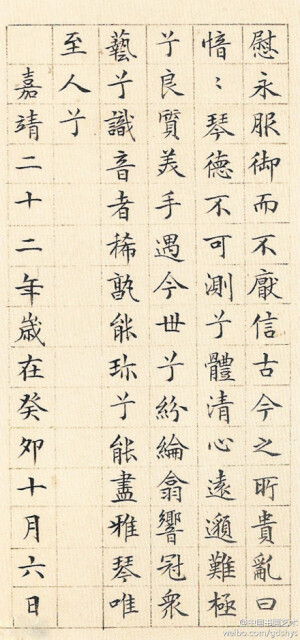 慰永服御而不厭信古今之所貴亂曰
愔〻琴德不可測兮體清心遠邈難極
兮良質美手遇今世兮紛綸翕響冠衆
藝兮識音者稀孰能珍兮能盡雅琴唯
至人兮
嘉靖二十二年歲在癸卯十月六日
@中国书画艺术
weibo.com/gdsfyx